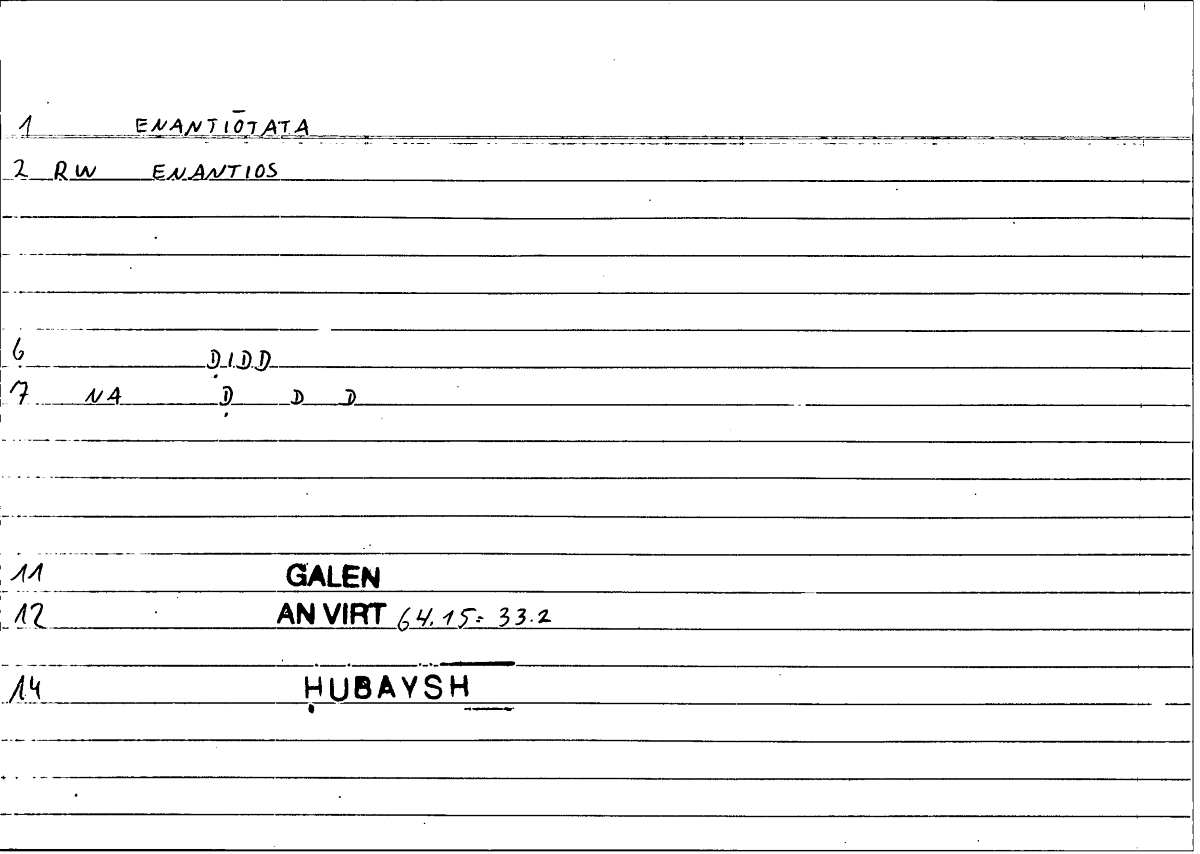 1 ENANTIŌTATA
2 RW ENANTIOS
6 ḌIDD
7 NA Ḍ D D
11 GALEN
12 AN VIRT 64.15= 33.2
14 ḤUBAYSH